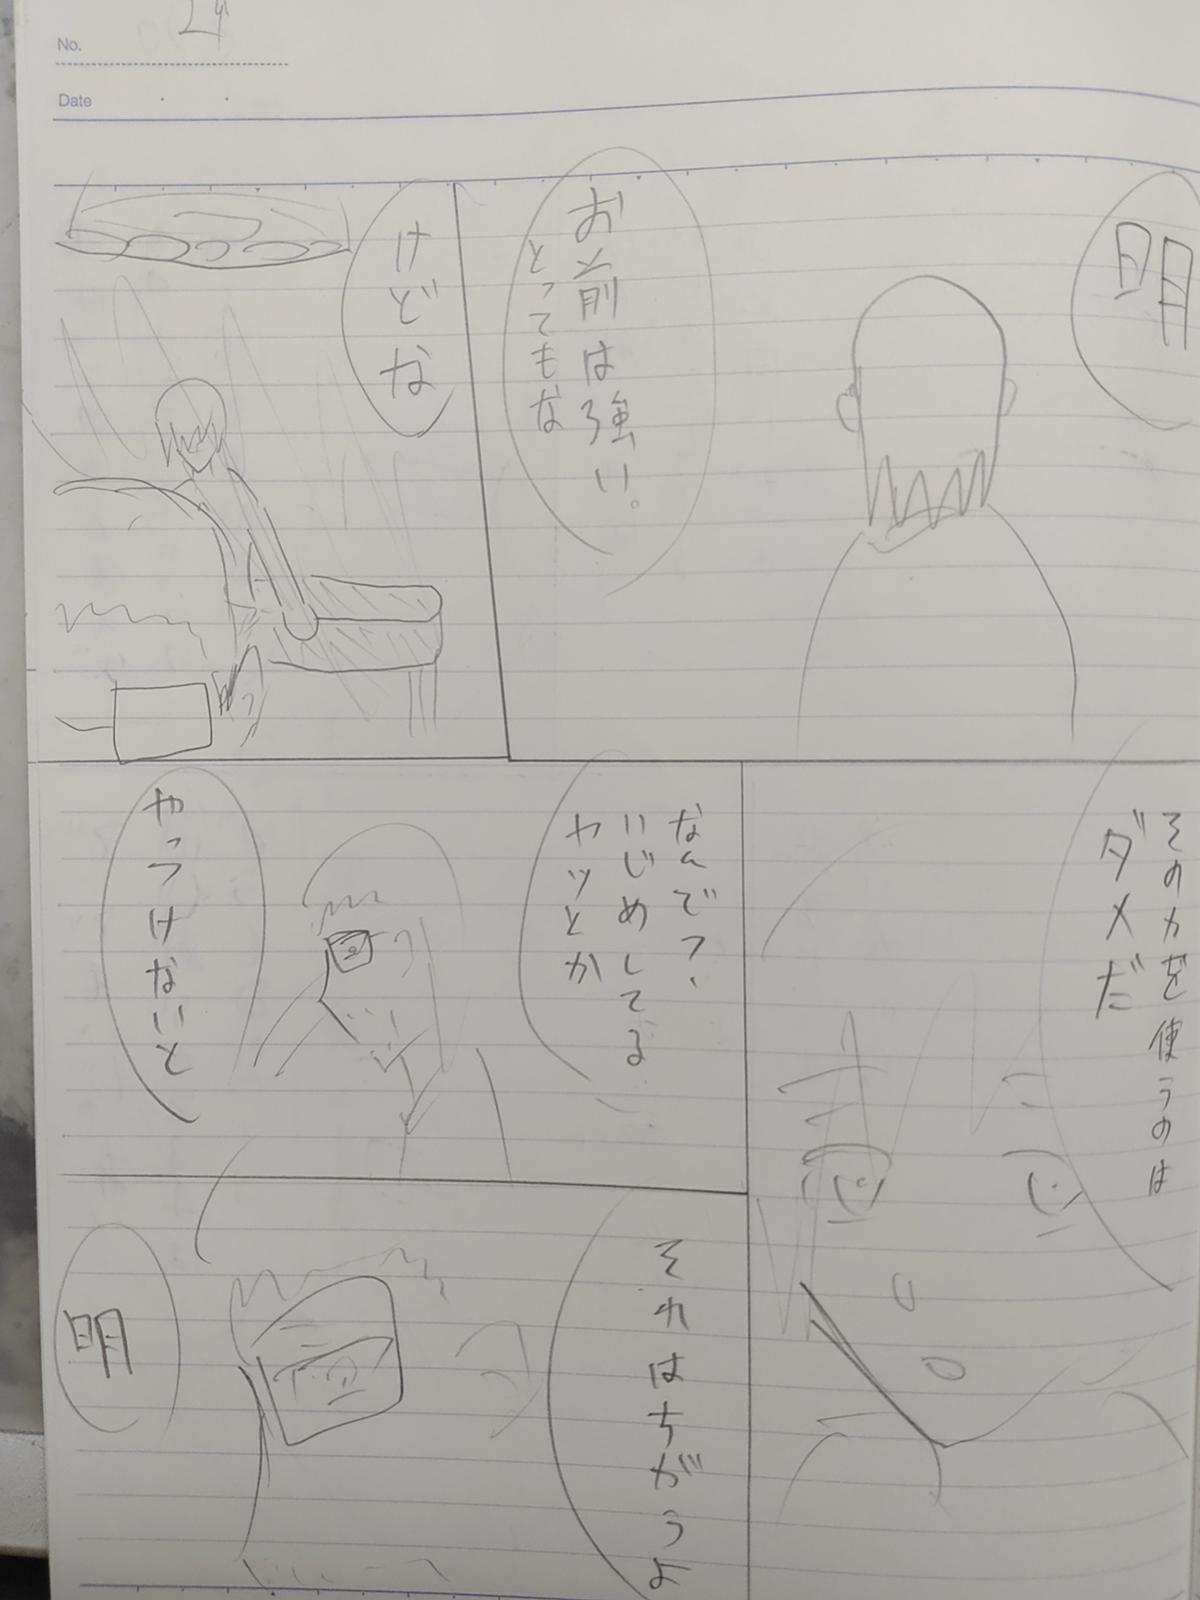 No.
Date
明
お前は強い。
とってもな
けどな
その力を使うのは
ダメだ
なんで?、
いじめしてる
ヤツとか
やっつけないと
それはちがうよ
明